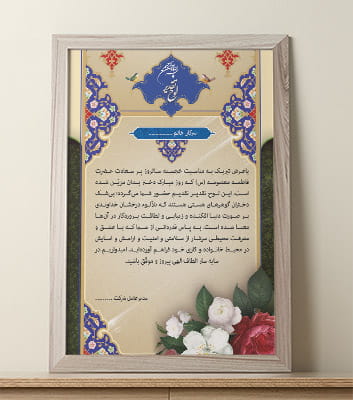 سرکار خانم ..............
باعرض تبریک به مناسبت خجسته سالروز پر سعادت حضرت
فاطمه معصومه (س) که روز مبارک دختر بدان مزین شده
است، این لوح تقدیر تقدیم حضور شما می‌گردد؛ بی‌شک
دختران گوهرهای هستی هستند که تلألوء درخشان خداوندی
بر صورت دنیا افکنده و زیبایی و لطافت پروردگار در آن‌ها
معنا شده است. به پاس قدردانی از شما که با عشق و
معرفت محیطی سرشار از سلامتی و امنیت و آرامش و آسایش
در محیط خانواده و کاری خود فراهم آورده‌اید، امیدواریم در
سایه سار الطاف الهی پیروز و موفق باشید.
مدیر عامل شرکت ..........